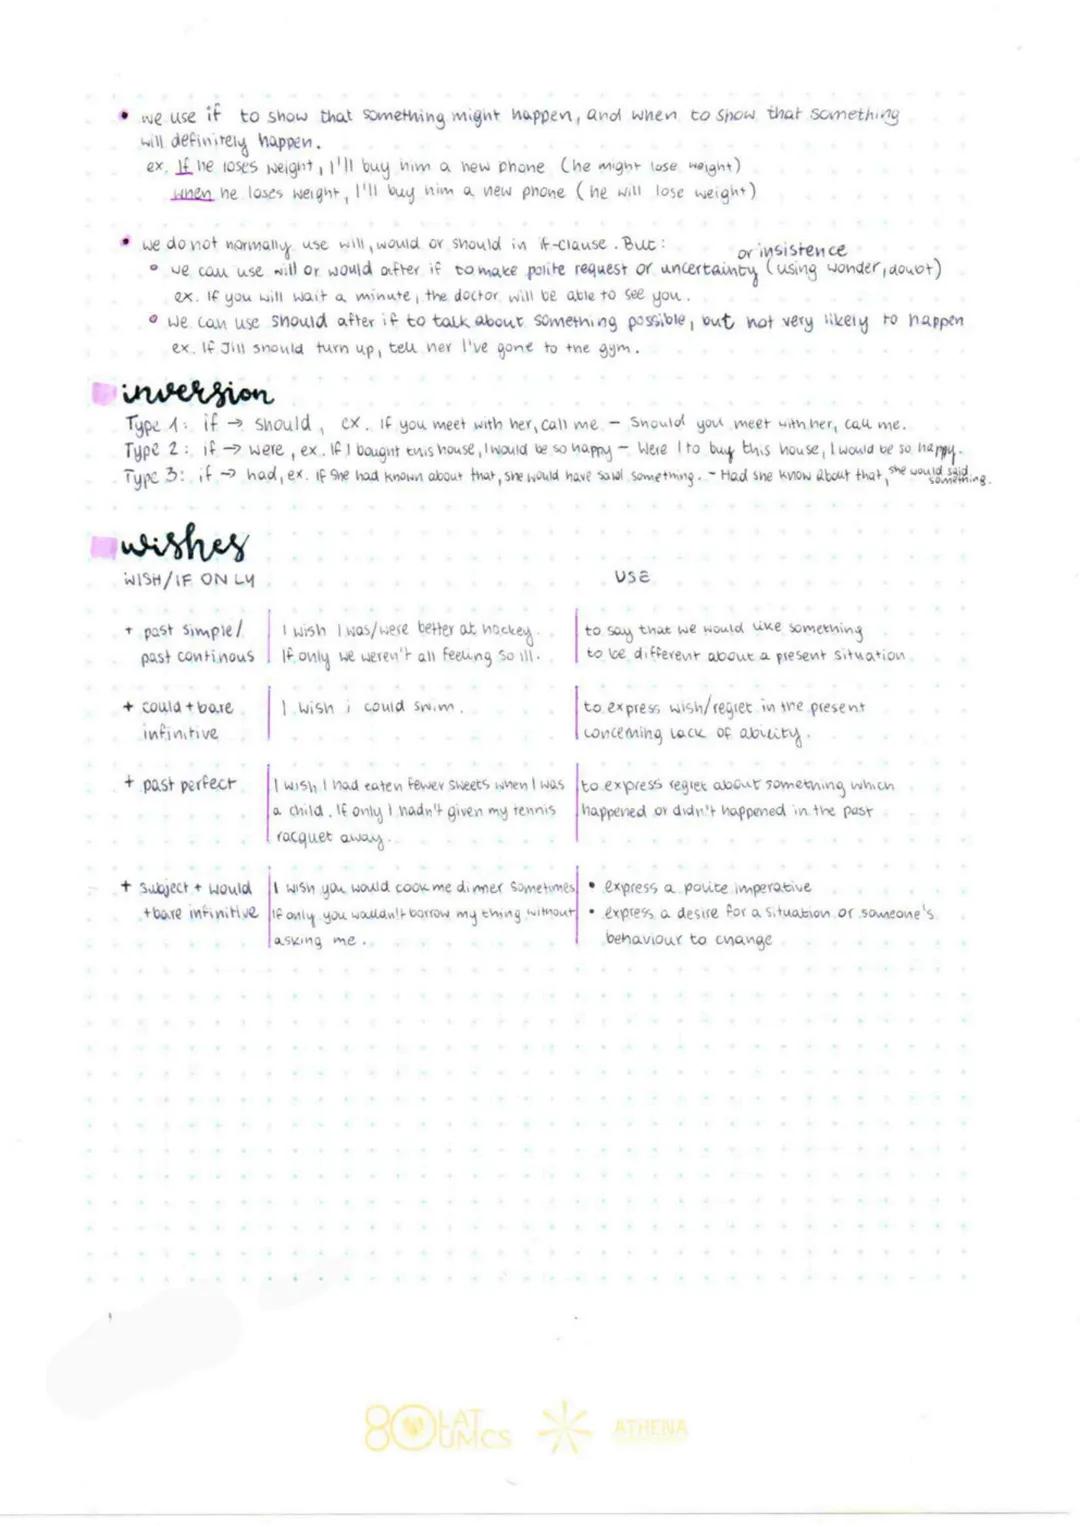 • we use if to show that something might happen, and when to show that something
will definitely happen.
ex. If he loses weight, I'll buy him a new phone (he might lose weight)
when he loses weight, I'll buy him a new phone (he will lose weight)
• we do not normally use will, would or should in if-clause. But:
or insistence
° we can use will or would after if to make polite request or uncertainty (using wonder, doubt)
ex. If you will wait a minute, the doctor will be able to see you.
° we can use should after if to talk about something possible, but not very likely to happen
ex. If Jill should turn up, tell her I've gone to the gym.
inversion
Type 1: if → should, ex. if you meet with her, call me. - Should you meet with her, call me.
Type 2: if → were, ex. If I bought this house, I would be so happy - Were I to buy this house, I would be so happy.
Type 3: if → had, ex. if she had known about that, she would have said something. - Had she know about that, she would said
something.
wishes
WISH/IF ONLY USE
+ past simple/ I wish I was/were better at hockey. to say that we would like something
past continous If only we weren't all feeling so ill. to be different about a present situation
+ could + bare I wish i could swim. to express wish/regret in the present
infinitive concerning lack of ability.
+ past perfect I wish I had eaten fewer sweets when I was to express regret about something which
a child. If only I hadn't given my tennis happened or didn't happened in the past
racquet away.
+ subject + would I wish you would cook me dinner sometimes • express a polite imperative
+ bare infinitive if only you wouldn't borrow my thing without • express a desire for a situation or someone's
asking me. behaviour to change
80 LAT
UMCS
ATHENA